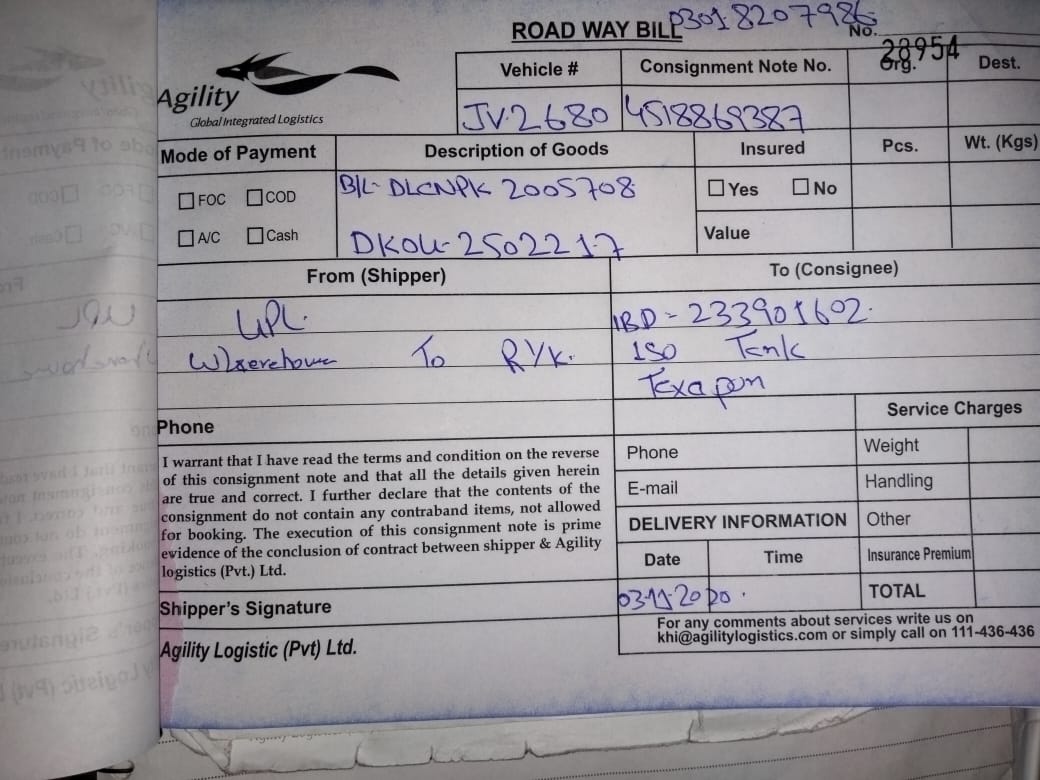 ROAD WAY BILL
0301-8207986
No. 28954
Agility
Global Integrated Logistics
Vehicle #
Consignment Note No.
Org.
Dest.
JV-2680
4518869387
Mode of Payment
Description of Goods
Insured
Pcs.
Wt. (Kgs)
FOC
COD
B/L- DLCNPK 2005708
Yes
No
A/C
Cash
DKOU-2502217
Value
From (Shipper)
To (Consignee)
UPL.
IBD - 233901602.
To RYK.
ISO Tank
Texapon
Phone
Service Charges
I warrant that I have read the terms and condition on the reverse
of this consignment note and that all the details given herein
are true and correct. I further declare that the contents of the
consignment do not contain any contraband items, not allowed
for booking. The execution of this consignment note is prime
evidence of the conclusion of contract between shipper & Agility
logistics (Pvt.) Ltd.
Phone
Weight
E-mail
Handling
DELIVERY INFORMATION
Other
Date
Time
Insurance Premium
03-11-2020.
TOTAL
Shipper's Signature
For any comments about services write us on
khi@agilitylogistics.com or simply call on 111-436-436
Agility Logistic (Pvt) Ltd.